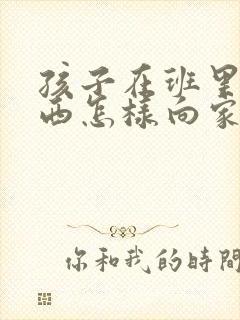 孩子在班里
西怎样向家
你和我的時間